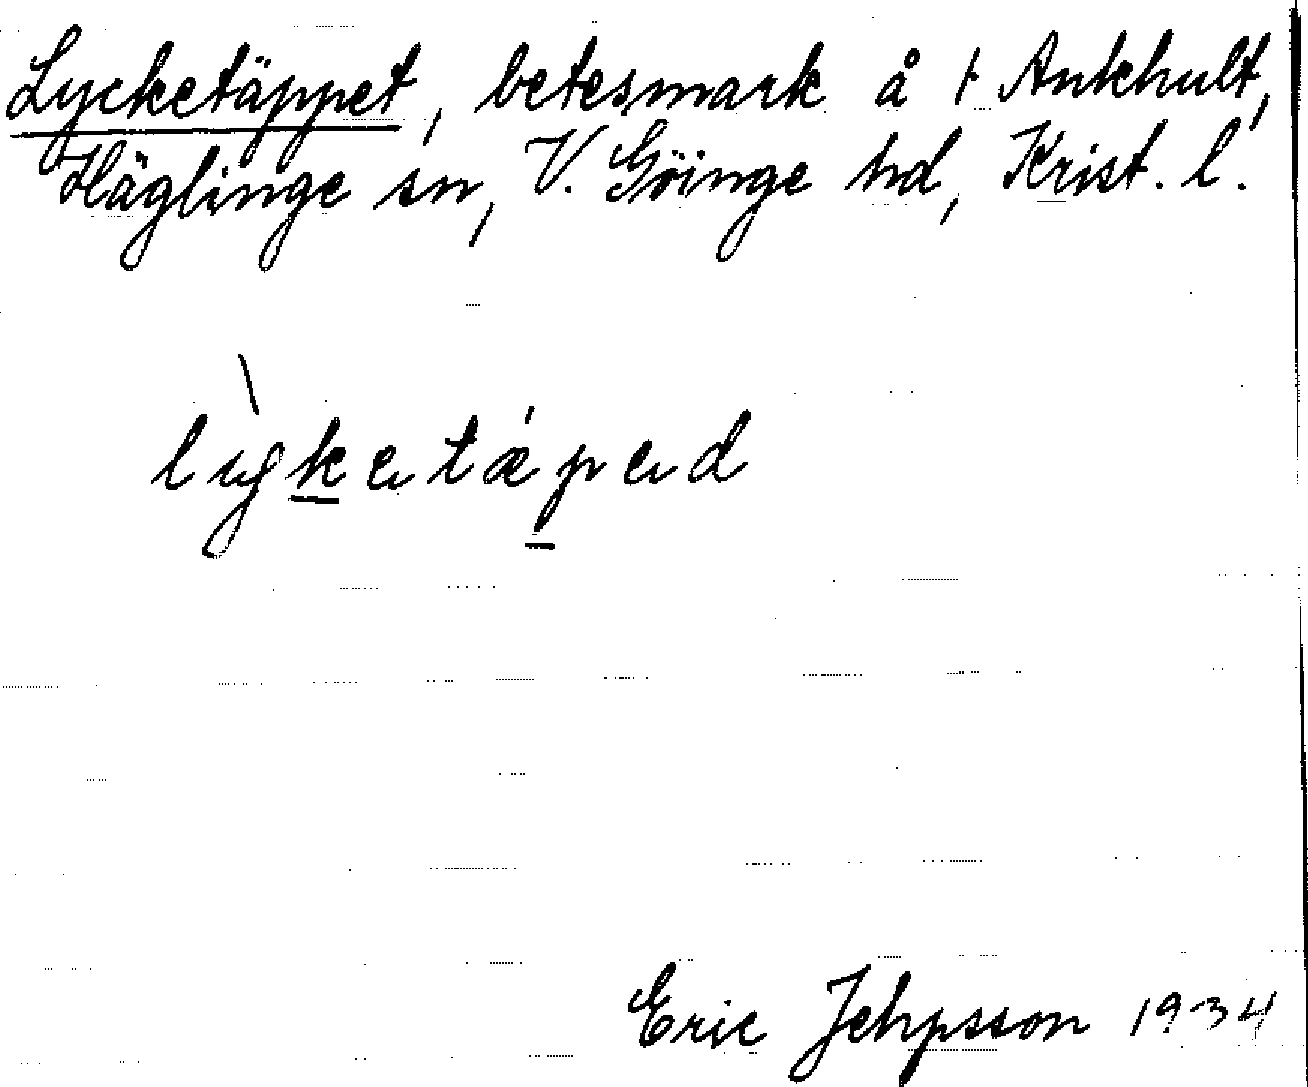 Lycketäppet, betesmark å t Ankhult,
Häglinge sn, V. Göinge hd, Krist. l.
lyketæped
Eric Jehpsson 1934